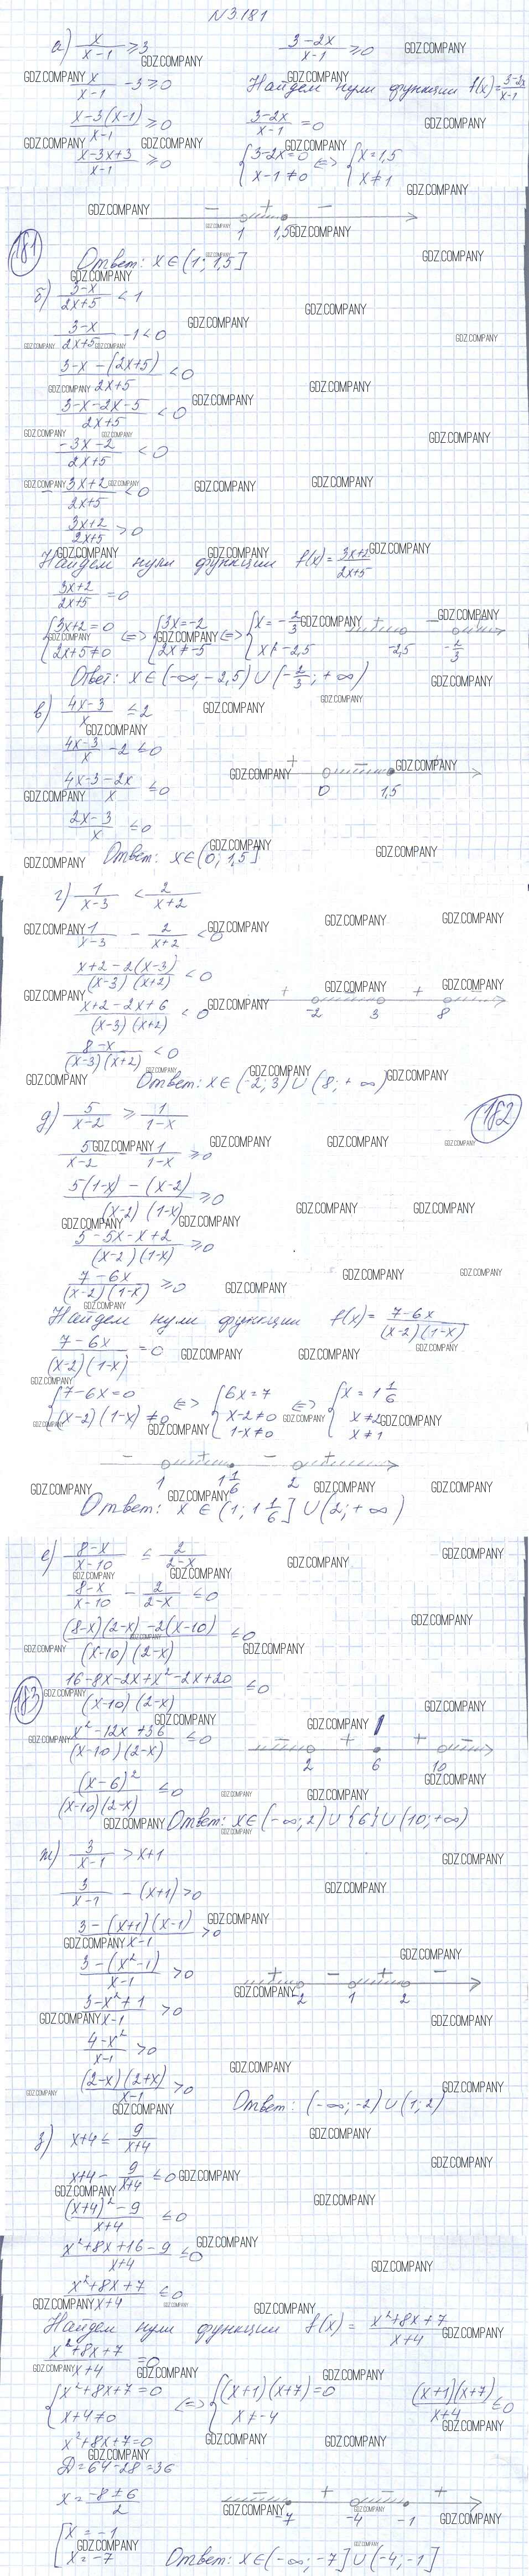 N3181
а) x/(x-1) ≥ 3
x/(x-1) - 3 ≥ 0
(x-3(x-1))/(x-1) ≥ 0
(x-3x+3)/(x-1) ≥ 0
(3-2x)/(x-1) ≥ 0
Найдем нули функции f(x) = (3-2x)/(x-1)
(3-2x)/(x-1) = 0
{3-2x=0 x-1≠0 <=> {x=1,5 x≠1
- + -
1 1,5
181
Ответ: x∈(1; 1,5]
б) (3-x)/(2x+5) < 1
(3-x)/(2x+5) - 1 < 0
(3-x-(2x+5))/(2x+5) < 0
(3-x-2x-5)/(2x+5) < 0
(-3x-2)/(2x+5) < 0
- (3x+2)/(2x+5) < 0
(3x+2)/(2x+5) > 0
Найдем нули функции f(x) = (3x+2)/(2x+5)
(3x+2)/(2x+5) = 0
{3x+2=0 2x+5≠0 <=> {3x=-2 2x≠-5 <=> {x=-2/3 x≠-2,5
+ - +
-2,5 -2/3
Ответ: x∈(-∞; -2,5) ∪ (-2/3; +∞)
в) (4x-3)/x ≤ 2
(4x-3)/x - 2 ≤ 0
(4x-3-2x)/x ≤ 0
(2x-3)/x ≤ 0
+ - +
0 1,5
Ответ: x∈(0; 1,5]
г) 1/(x-3) < 2/(x+2)
1/(x-3) - 2/(x+2) < 0
(x+2-2(x-3))/((x-3)(x+2)) < 0
(x+2-2x+6)/((x-3)(x+2)) < 0
(8-x)/((x-3)(x+2)) < 0
+ - + -
-2 3 8
Ответ: x∈(-2; 3) ∪ (8; +∞)
182
д) 5/(x-2) ≥ 1/(1-x)
5/(x-2) - 1/(1-x) ≥ 0
(5(1-x)-(x-2))/((x-2)(1-x)) ≥ 0
(5-5x-x+2)/((x-2)(1-x)) ≥ 0
(7-6x)/((x-2)(1-x)) ≥ 0
Найдем нули функции f(x) = (7-6x)/((x-2)(1-x))
(7-6x)/((x-2)(1-x)) = 0
{7-6x=0 (x-2)(1-x)≠0 <=> {6x=7 x-2≠0 1-x≠0 <=> {x=1 1/6 x≠2 x≠1
- + - +
1 1 1/6 2
Ответ: x∈(1; 1 1/6] ∪ (2; +∞)
е) (8-x)/(x-10) ≤ 2/(2-x)
(8-x)/(x-10) - 2/(2-x) ≤ 0
((8-x)(2-x)-2(x-10))/((x-10)(2-x)) ≤ 0
(16-8x-2x+x²-2x+20)/((x-10)(2-x)) ≤ 0
183
(x²-12x+36)/((x-10)(2-x)) ≤ 0
(x-6)²/((x-10)(2-x)) ≤ 0
- + + -
2 6 10
Ответ: x∈(-∞; 2) ∪ {6} ∪ (10; +∞)
ж) 3/(x-1) > x+1
3/(x-1) - (x+1) > 0
(3-(x+1)(x-1))/(x-1) > 0
(3-(x²-1))/(x-1) > 0
(3-x²+1)/(x-1) > 0
(4-x²)/(x-1) > 0
((2-x)(2+x))/(x-1) > 0
+ - + -
-2 1 2
Ответ: (-∞; -2) ∪ (1; 2)
з) x+4 ≤ 9/(x+4)
x+4 - 9/(x+4) ≤ 0
((x+4)²-9)/(x+4) ≤ 0
(x²+8x+16-9)/(x+4) ≤ 0
(x²+8x+7)/(x+4) ≤ 0
Найдем нули функции f(x) = (x²+8x+7)/(x+4)
(x²+8x+7)/(x+4) = 0
{x²+8x+7=0 x+4≠0 <=> {(x+1)(x+7)=0 x≠-4
((x+1)(x+7))/(x+4) ≤ 0
x²+8x+7=0
D=64-28=36
x = (-8±6)/2
[x=-1 x=-7
- + - +
-7 -4 -1
Ответ: x∈(-∞; -7] ∪ (-4; -1]
GDZ.COMPANY